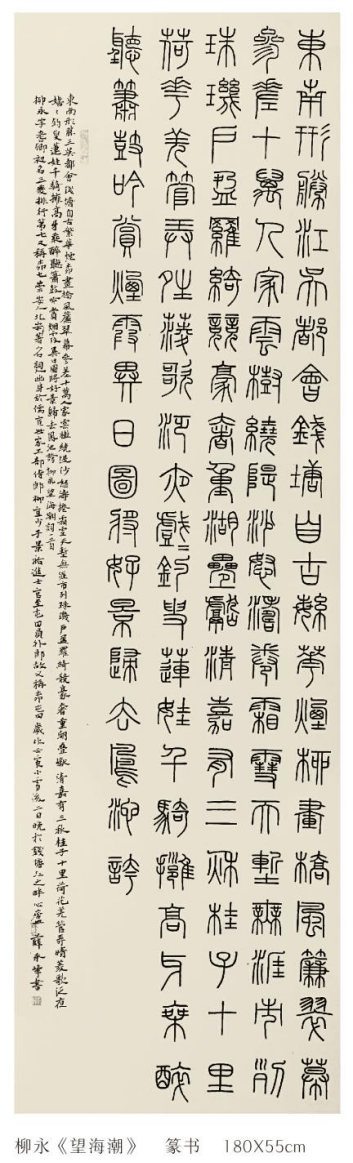 東南形勝江吳都會錢塘自古繁華煙柳畫橋風簾翠幕
參差十萬人家雲樹繞隄沙怒濤卷霜雪天塹無涯市列
珠璣戶盈羅綺競豪奢重湖疊巘清嘉有三秋桂子十里
荷花羌管弄晴菱歌泛夜戲〻釣叟蓮娃千騎擁高牙乘醉
聽簫鼓吟賞煙霞異日圖將好景歸去鳳池誇
東南形勝三吳都會錢塘自古繁華煙柳畫橋風簾翠幕參差十萬人家雲樹繞堤沙怒濤捲霜雪天塹無涯市列珠璣戶盈羅綺競豪奢重湖疊巘清嘉有三秋桂子十里荷花羌管弄晴菱歌泛夜
嬉〻釣叟蓮娃千騎擁高牙乘醉聽簫鼓吟賞煙霞異日圖將好景歸去鳳池誇柳永望海潮詞一首
柳永字耆卿初名三變排行第七又稱柳七崇安人北宋著名詞出身於儒官世家工部侍郎柳宜少子景祐進士官至屯田員外郎故又稱柳屯田
柳永《望海潮》 篆书 180X55cm